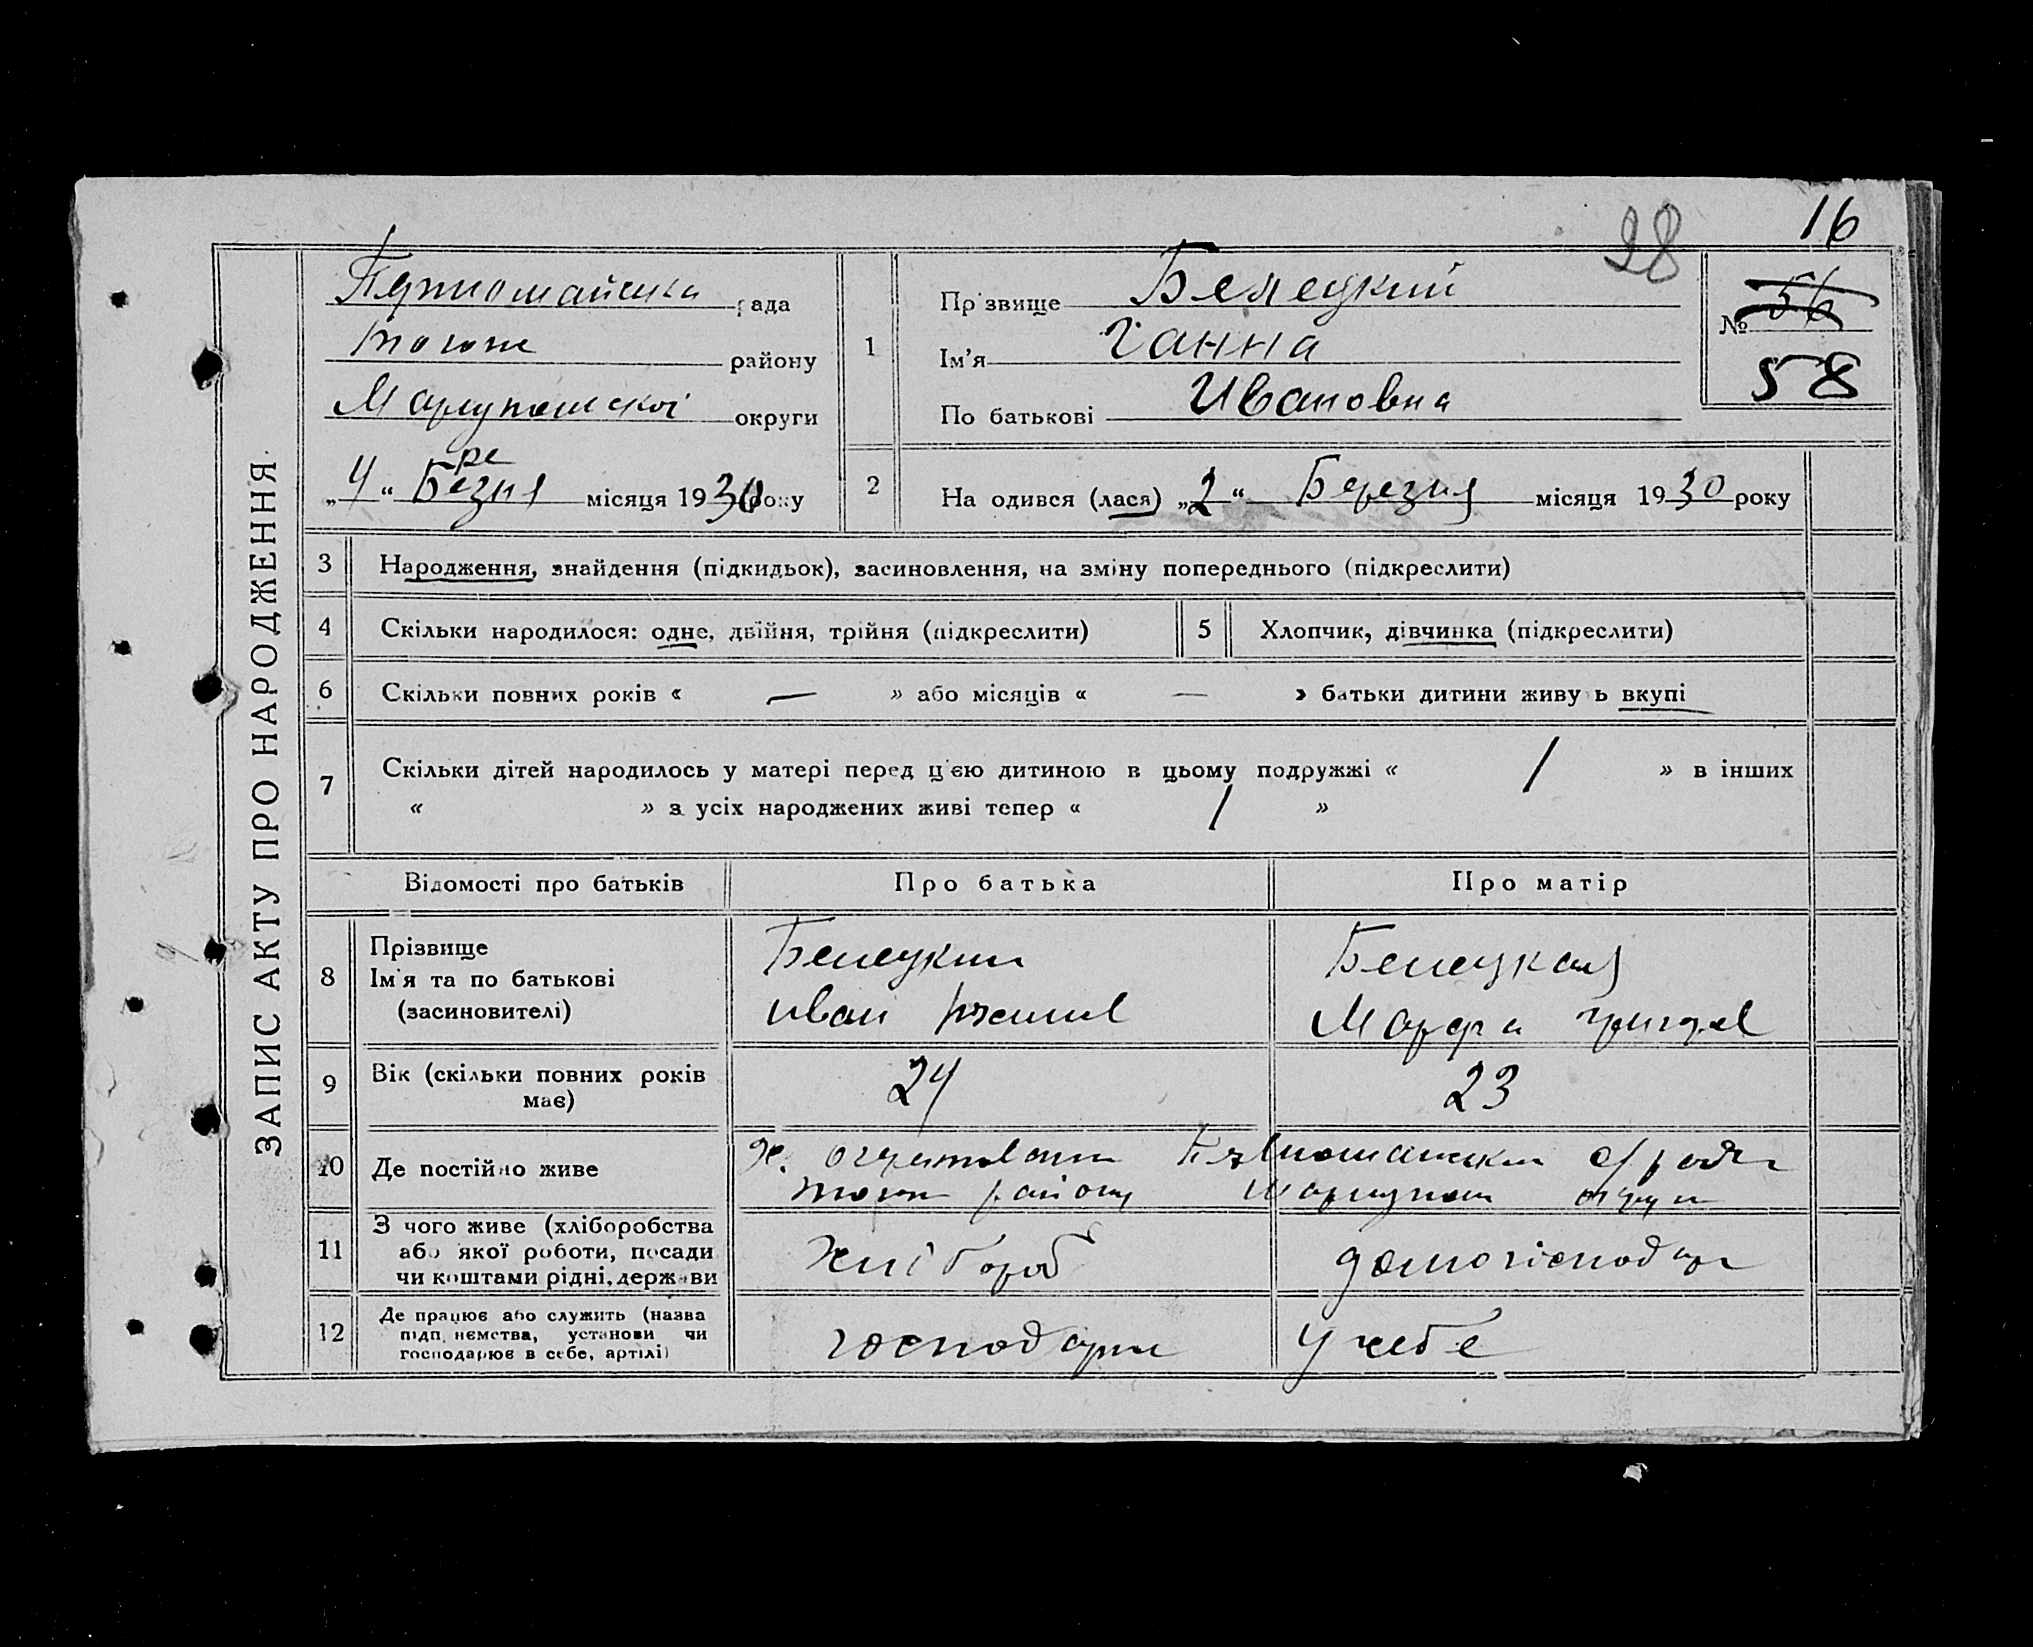 16
98
ЗАПИС АКТУ ПРО НАРОДЖЕННЯ.
Першомайська рада
того ж району
Маріупольської округи
„4“ Березня місяця 1930 року
1
Прізвище Белецкий
Ім'я Ганна
По батькові Ивановна
№ 56
58
2 На одився (лася) „2“ Березня місяця 1930 року
3 Народження, знайдення (підкидьок), засиновлення, на зміну попереднього (підкреслити)
4 Скільки народилося: одне, двійня, трійня (підкреслити) 5 Хлопчик, дівчинка (підкреслити)
6 Скільки повних років « — » або місяців « — » батьки дитини живуть вкупі
7 Скільки дітей народилось у матері перед цією дитиною в цьому подружжі « 1 » в інших
« » з усіх народжених живі тепер « 1 »
Відомості про батьків Про батька Про матір
8 Прізвище
Ім'я та по батькові
(засиновителі)
Белецкий
иван
Белецкая
Марфа григор
9 Вік (скільки повних років
має)
24 23
10 Де постійно живе
х. с/ради
того ж району Маріупол округи
11 З чого живе (хліборобства
або якої роботи, посади
чи коштами рідні, держави
хлібороб домогісподарк
12 Де працює або служить (назва
підп иємства, установи чи
господарює в себе, артілі)
господарює у себе